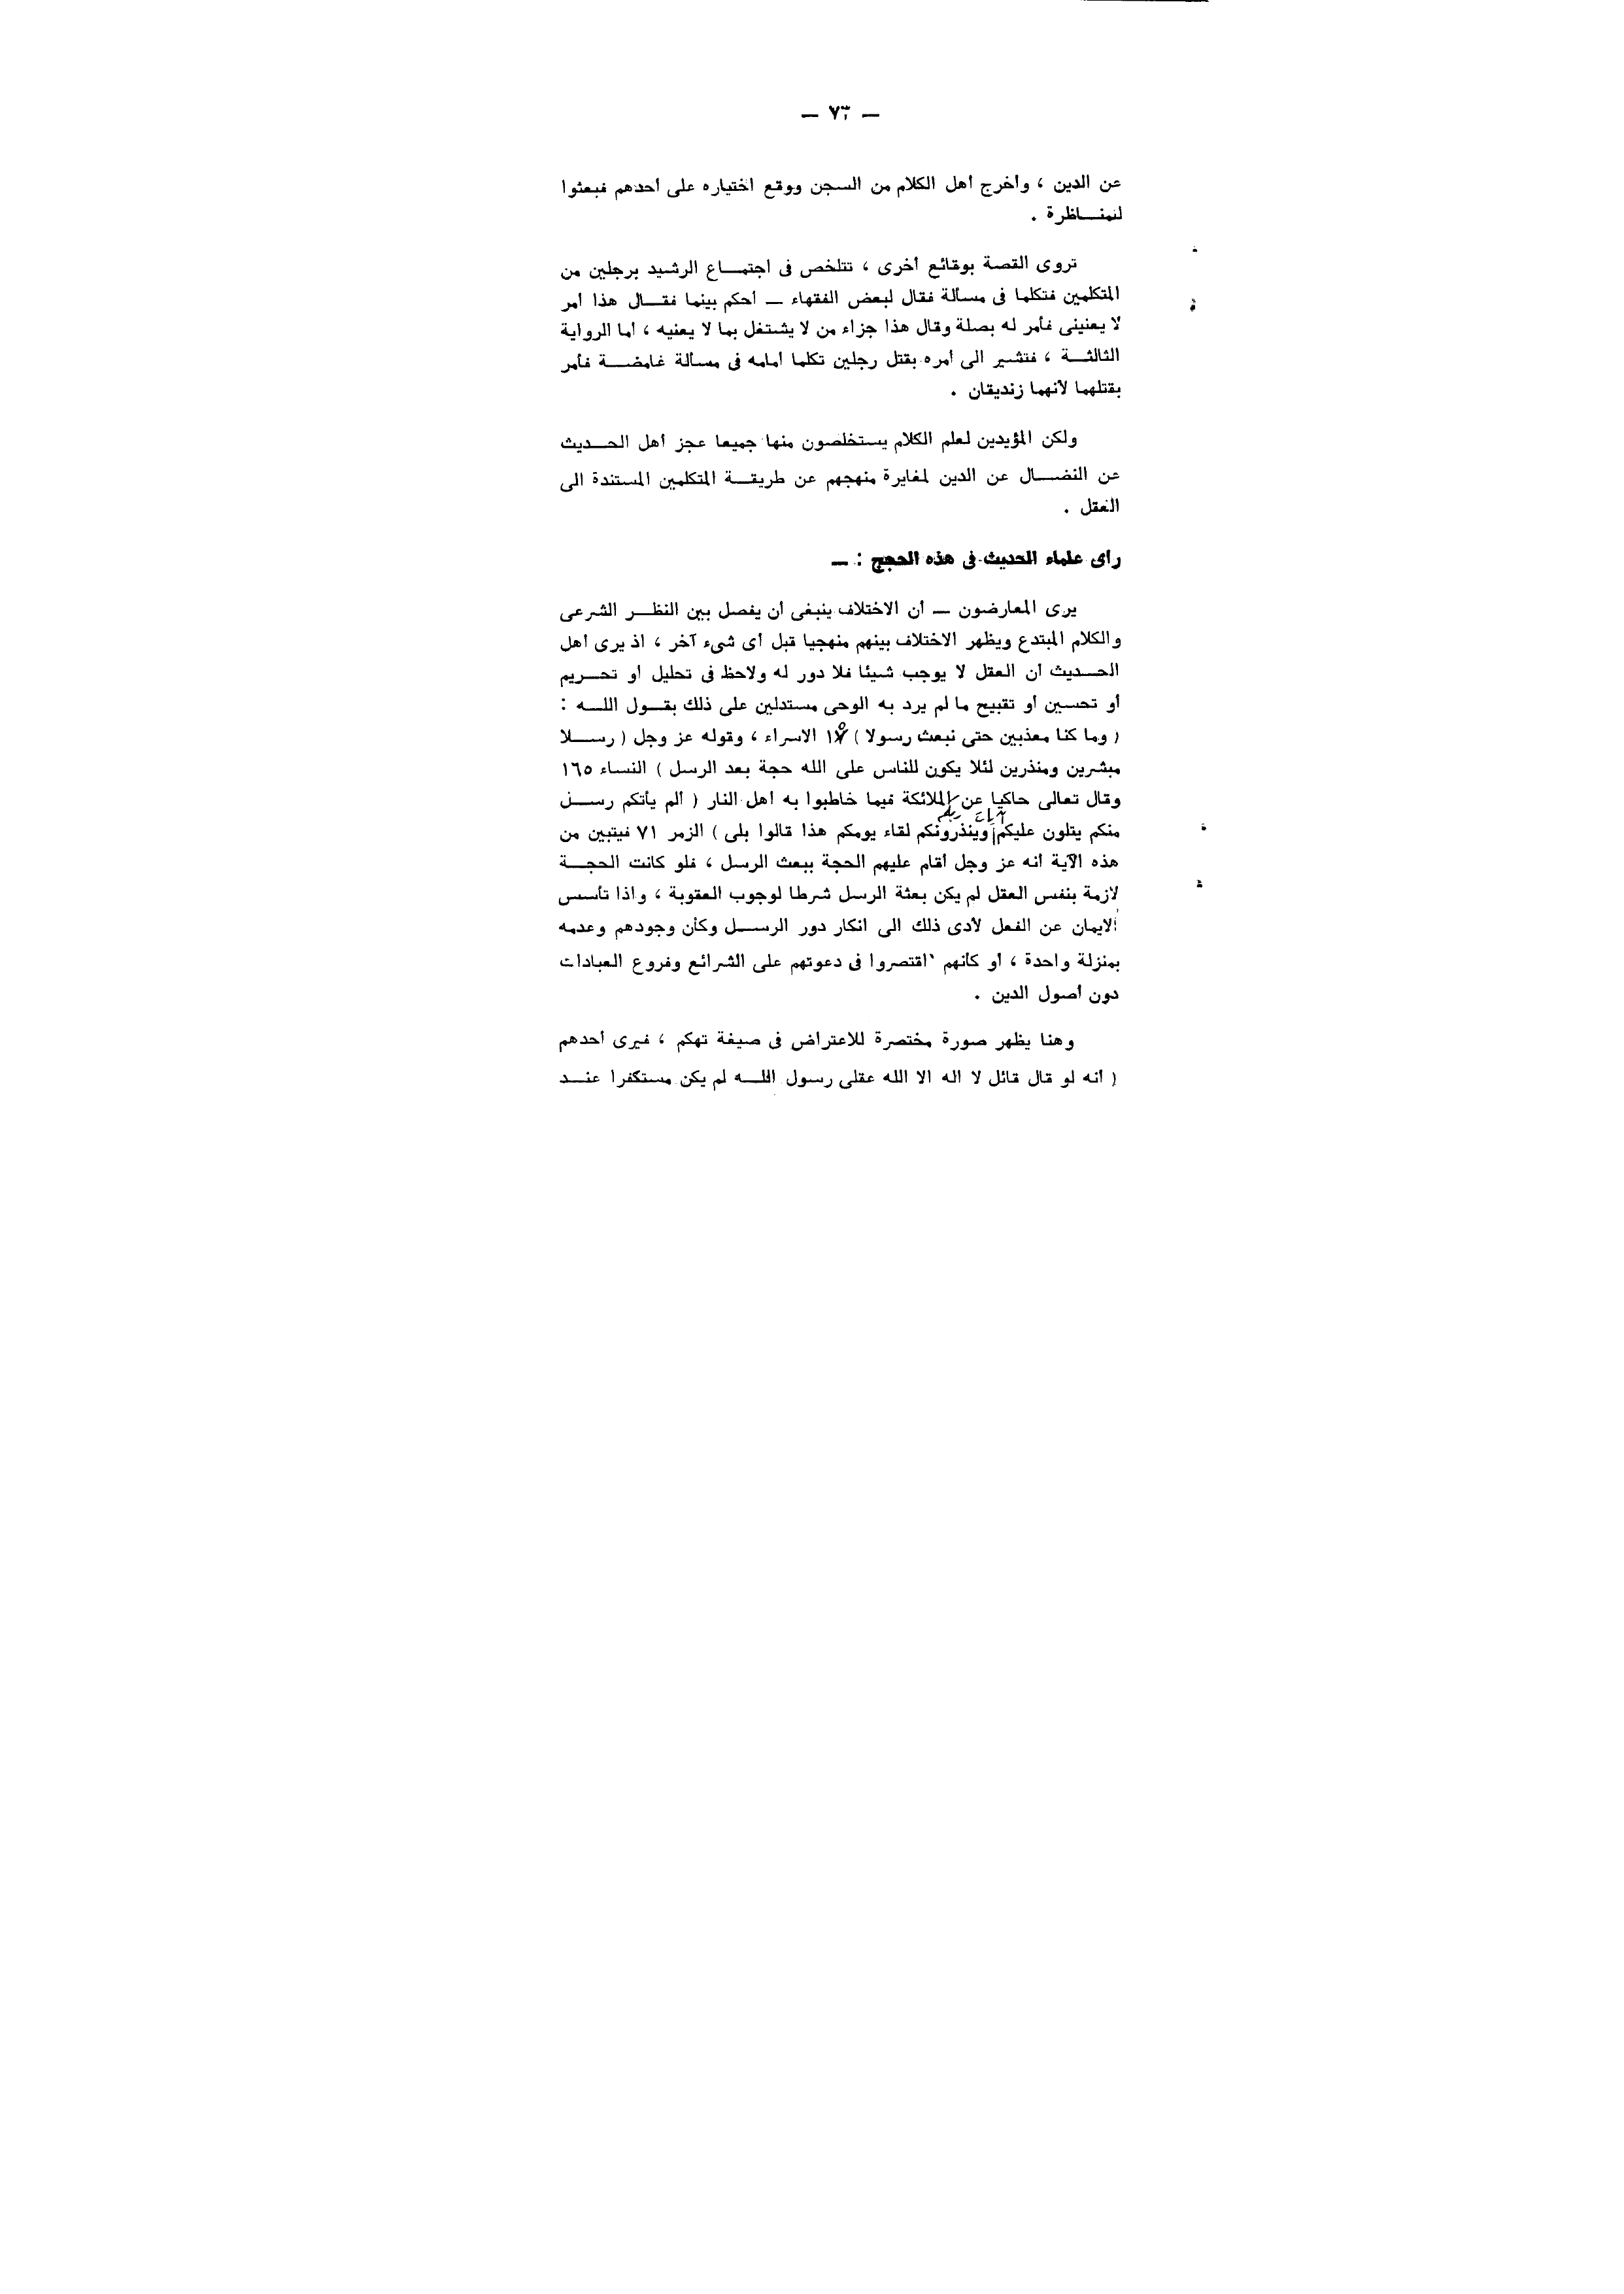 — ٧٣ —
عن الدين ، وأخرج أهل الكلام من السجن ووقع اختياره على أحدهم فبعثوا
للمنـــاظرة .
تروى القصة بوقائع أخرى ، تتلخص فى اجتمـــاع الرشيد برجلين من
المتكلمين فتكلما فى مسألة فقال لبعض الفقهاء — أحكم بينما فقـــال هذا أمر
لا يعنينى فأمر له بصلة وقال هذا جزاء من لا يشتغل بما لا يعنيه ، أما الرواية
الثالثـــة ، فتشير الى أمره بقتل رجلين تكلما أمامه فى مسألة غامضـــة فأمر
بقتلهما لأنهما زنديقان .
ولكن المؤيدين لعلم الكلام يستخلصون منها جميعا عجز أهل الحـــديث
عن النضـــال عن الدين لمغايرة منهجهم عن طريقـــة المتكلمين المستندة الى
العقل .
رأى علماء الحديث فى هذه الحجج : —
يرى المعارضون — أن الاختلاف ينبغى أن يفصل بين النظـــر الشرعى
والكلام المبتدع ويظهر الاختلاف بينهم منهجيا قبل أى شىء آخر ، اذ يرى أهل
الحـــديث أن العقل لا يوجب شيئا فلا دور له ولاحظ فى تحليل أو تحـــريم
أو تحسين أو تقبيح ما لم يرد به الوحى مستدلين على ذلك بقـــول اللـــه :
( وما كنا معذبين حتى نبعث رسولا ) ١٥ الاسراء ، وقوله عز وجل ( رســـلا
مبشرين ومنذرين لئلا يكون للناس على الله حجة بعد الرسل ) النساء ١٦٥
وقال تعالى حاكيا عن الملائكة فيما خاطبوا به أهل النار ( ألم يأتكم رســـل
آيات ربكم
منكم يتلون عليكم وينذرونكم لقاء يومكم هذا قالوا بلى ) الزمر ٧١ فيتبين من
هذه الآية أنه عز وجل أقام عليهم الحجة ببعث الرسل ، فلو كانت الحجـــة
لازمة بنفس العقل لم يكن بعثة الرسل شرطا لوجوب العقوبة ، واذا تأسس
الايمان عن الفعل لأدى ذلك الى انكار دور الرســـل وكأن وجودهم وعدمه
بمنزلة واحدة ، أو كأنهم اقتصروا فى دعوتهم على الشرائع وفروع العبادات
دون أصول الدين .
وهنا يظهر صورة مختصرة للاعتراض فى صيغة تهكم ، فيرى أحدهم
( أنه لو قال قائل لا اله الا الله عقلى رسول اللـــه لم يكن مستكفرا عنـــد